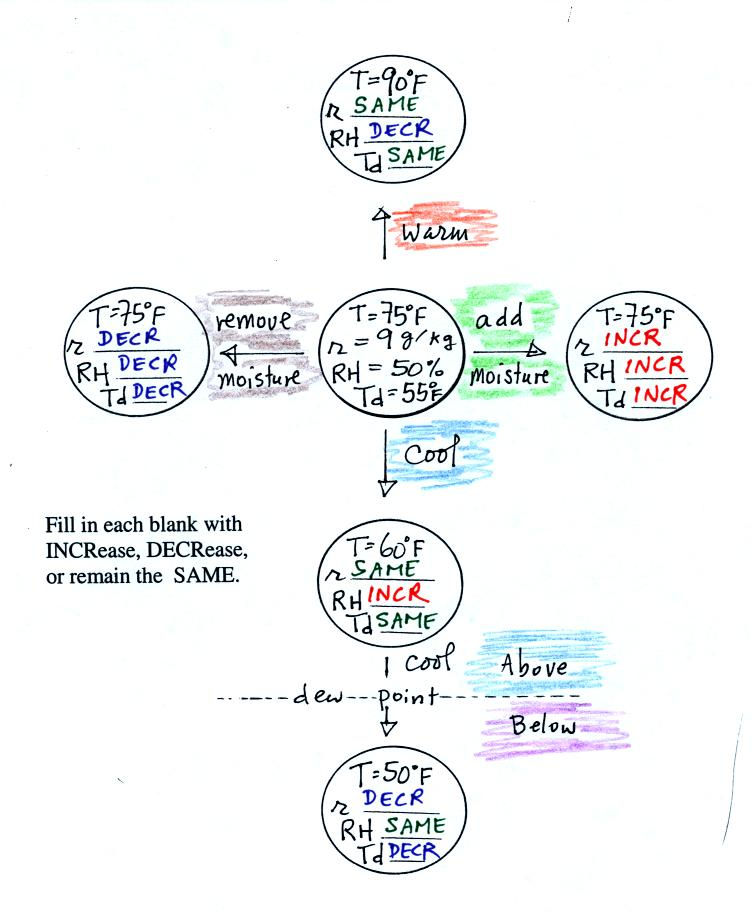 T=90°F
r SAME
RH DECR
Td SAME
Warm
T=75°F
r DECR
RH DECR
Td DECR
remove
moisture
T=75°F
r = 9 g/kg
RH = 50%
Td = 55°F
add
moisture
T=75°F
r INCR
RH INCR
Td INCR
Cool
Fill in each blank with
INCRease, DECRease,
or remain the SAME.
T=60°F
r SAME
RH INCR
Td SAME
Cool
Above
dew point
Below
T=50°F
r DECR
RH SAME
Td DECR